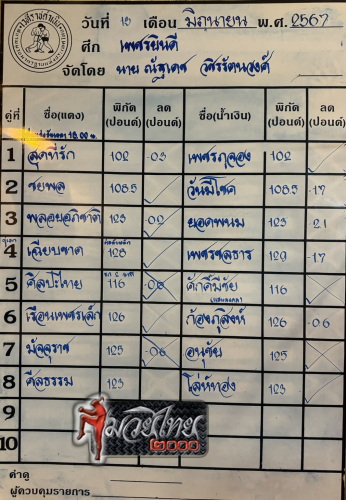 วันที่ 13 เดือน มิถุนายน พ.ศ. 2567
ศึก เพชรยินดี
จัดโดย นาย ณัฐเดช วชิรรัตนวงศ์
คู่ที่ ชื่อ(แดง) พิกัด (ปอนด์) ลด (ปอนด์) ชื่อ(น้ำเงิน) พิกัด (ปอนด์) ลด (ปอนด์)
1 สุดที่รัก 102 .03 เพชรภูจอง 102
2 ชยพล 108.5 วันมีโชค 108.5 .17
3 พลอยอภิชาติ 123 .02 ยอดพนม 123 2.1
คู่เอก
4 เฉียบขาด 128 เพชรชลธาร 129 .17
5 ศิลปะไทย 116 .08 ศักดิ์มีชัย 116
6 เรือนเพชรเล็ก 126 ก้องภูสิงห์ 126 .06
7 มัจจุราช 125 .06 อนุชัย 125
8 ศีลธรรม 123 โล่ห์ทอง 123
9
10
มวยไทย
2000
ค่าดู
ผู้ควบคุมรายการ